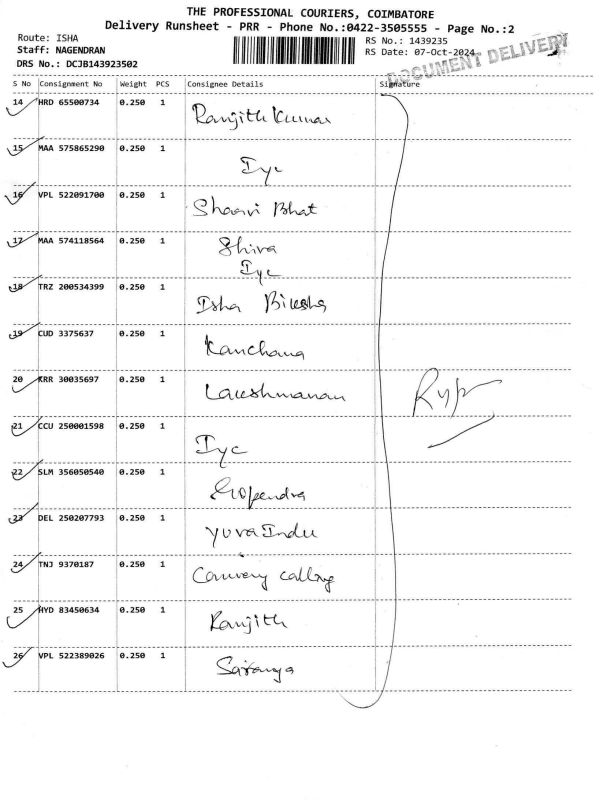 THE PROFESSIONAL COURIERS, COIMBATORE
Delivery Runsheet - PRR - Phone No.:0422-3505555 - Page No.:2
Route: ISHA
Staff: NAGENDRAN
DRS No.: DCJB143923502
RS No.: 1439235
RS Date: 07-Oct-2024
DOCUMENT DELIVERY
S No Consignment No Weight PCS Consignee Details Signature
14 HRD 65500734 0.250 1 Ranjith Kumar
15 MAA 575865290 0.250 1 Iyc
16 VPL 522091700 0.250 1 Bhat
17 MAA 574118564 0.250 1 Shiva
Iyc
18 TRZ 200534399 0.250 1 Isha
19 CUD 3375637 0.250 1 Kanchana
20 KRR 30035697 0.250 1 Laxshmanan
21 CCU 250001598 0.250 1 Iyc
22 SLM 356050540 0.250 1 Gopendra
23 DEL 250207793 0.250 1 Yuva Indu
24 TNJ 9370187 0.250 1
25 HYD 83450634 0.250 1 Ranjith
26 VPL 522389026 0.250 1 Saranya